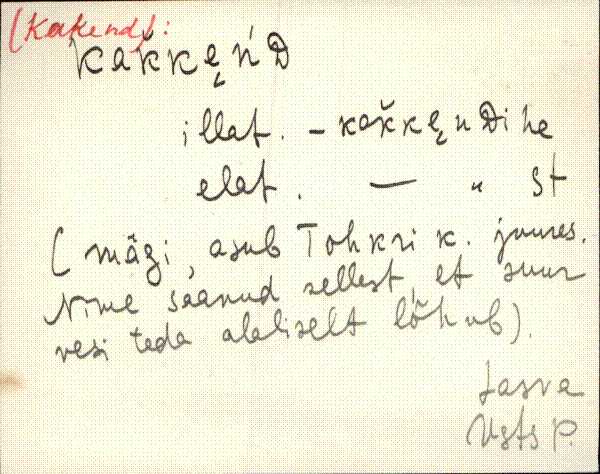 (Kakend):
kak̆kęńD
illat. – kak̆kęnDihe
elat. — " st
(mägi, asub Tohkri k. juures.
Nime saanud sellest, et suur
vesi teda alaliselt lõhub).
Jasva